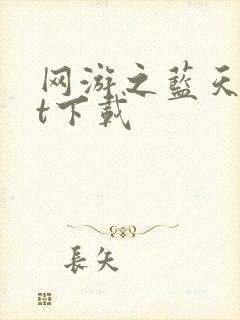 网游之蓝天
t下载
長矢